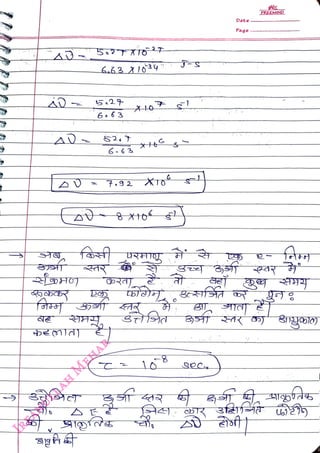 Date
Page
Δν = 5.27 × 10⁻²⁷ / 6.63 × 10⁻³⁴ J-s
Δν = 5.27 / 6.63 × 10⁷ s⁻¹
Δν = 52.7 / 6.63 × 10⁶ s⁻
Δν = 7.92 × 10⁶ s⁻¹
Δν = 8 × 10⁶ s⁻¹
→ जब किसी परमाणु में से एक e- निम्न
ऊर्जा स्तर से उच्च ऊर्जा स्तर में
संक्रमण करता है तो वहाँ कुछ समय
रूककर एक फोटॉन उत्सर्जित कर पुनः
निम्न ऊर्जा स्तर में आ जाता है।
यह समय उत्तेजित ऊर्जा स्तर का आयुकाल
कहलाता है।
τ = 10⁻⁸ sec.
→ उत्तेजित ऊर्जा स्तर की ऊर्जा की प्राकृतिक
चौ. ΔE है जिस कार फोटॉन
की प्राकृतिक चौ. Δν होगी।